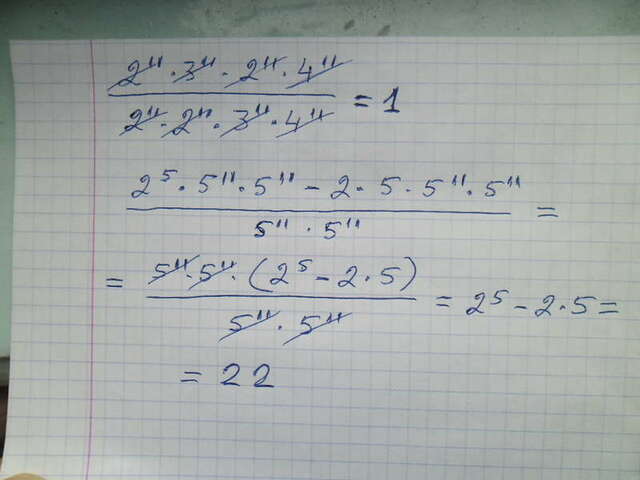 2¹¹ · 3¹¹ · 2¹¹ · 4¹¹
2¹¹ · 2¹¹ · 3¹¹ · 4¹¹
= 1
2⁵ · 5¹¹ · 5¹¹ − 2 · 5 · 5¹¹ · 5¹¹
5¹¹ · 5¹¹
=
= 5¹¹ · 5¹¹ · (2⁵ − 2 · 5)
5¹¹ · 5¹¹
= 2⁵ − 2 · 5 =
= 22